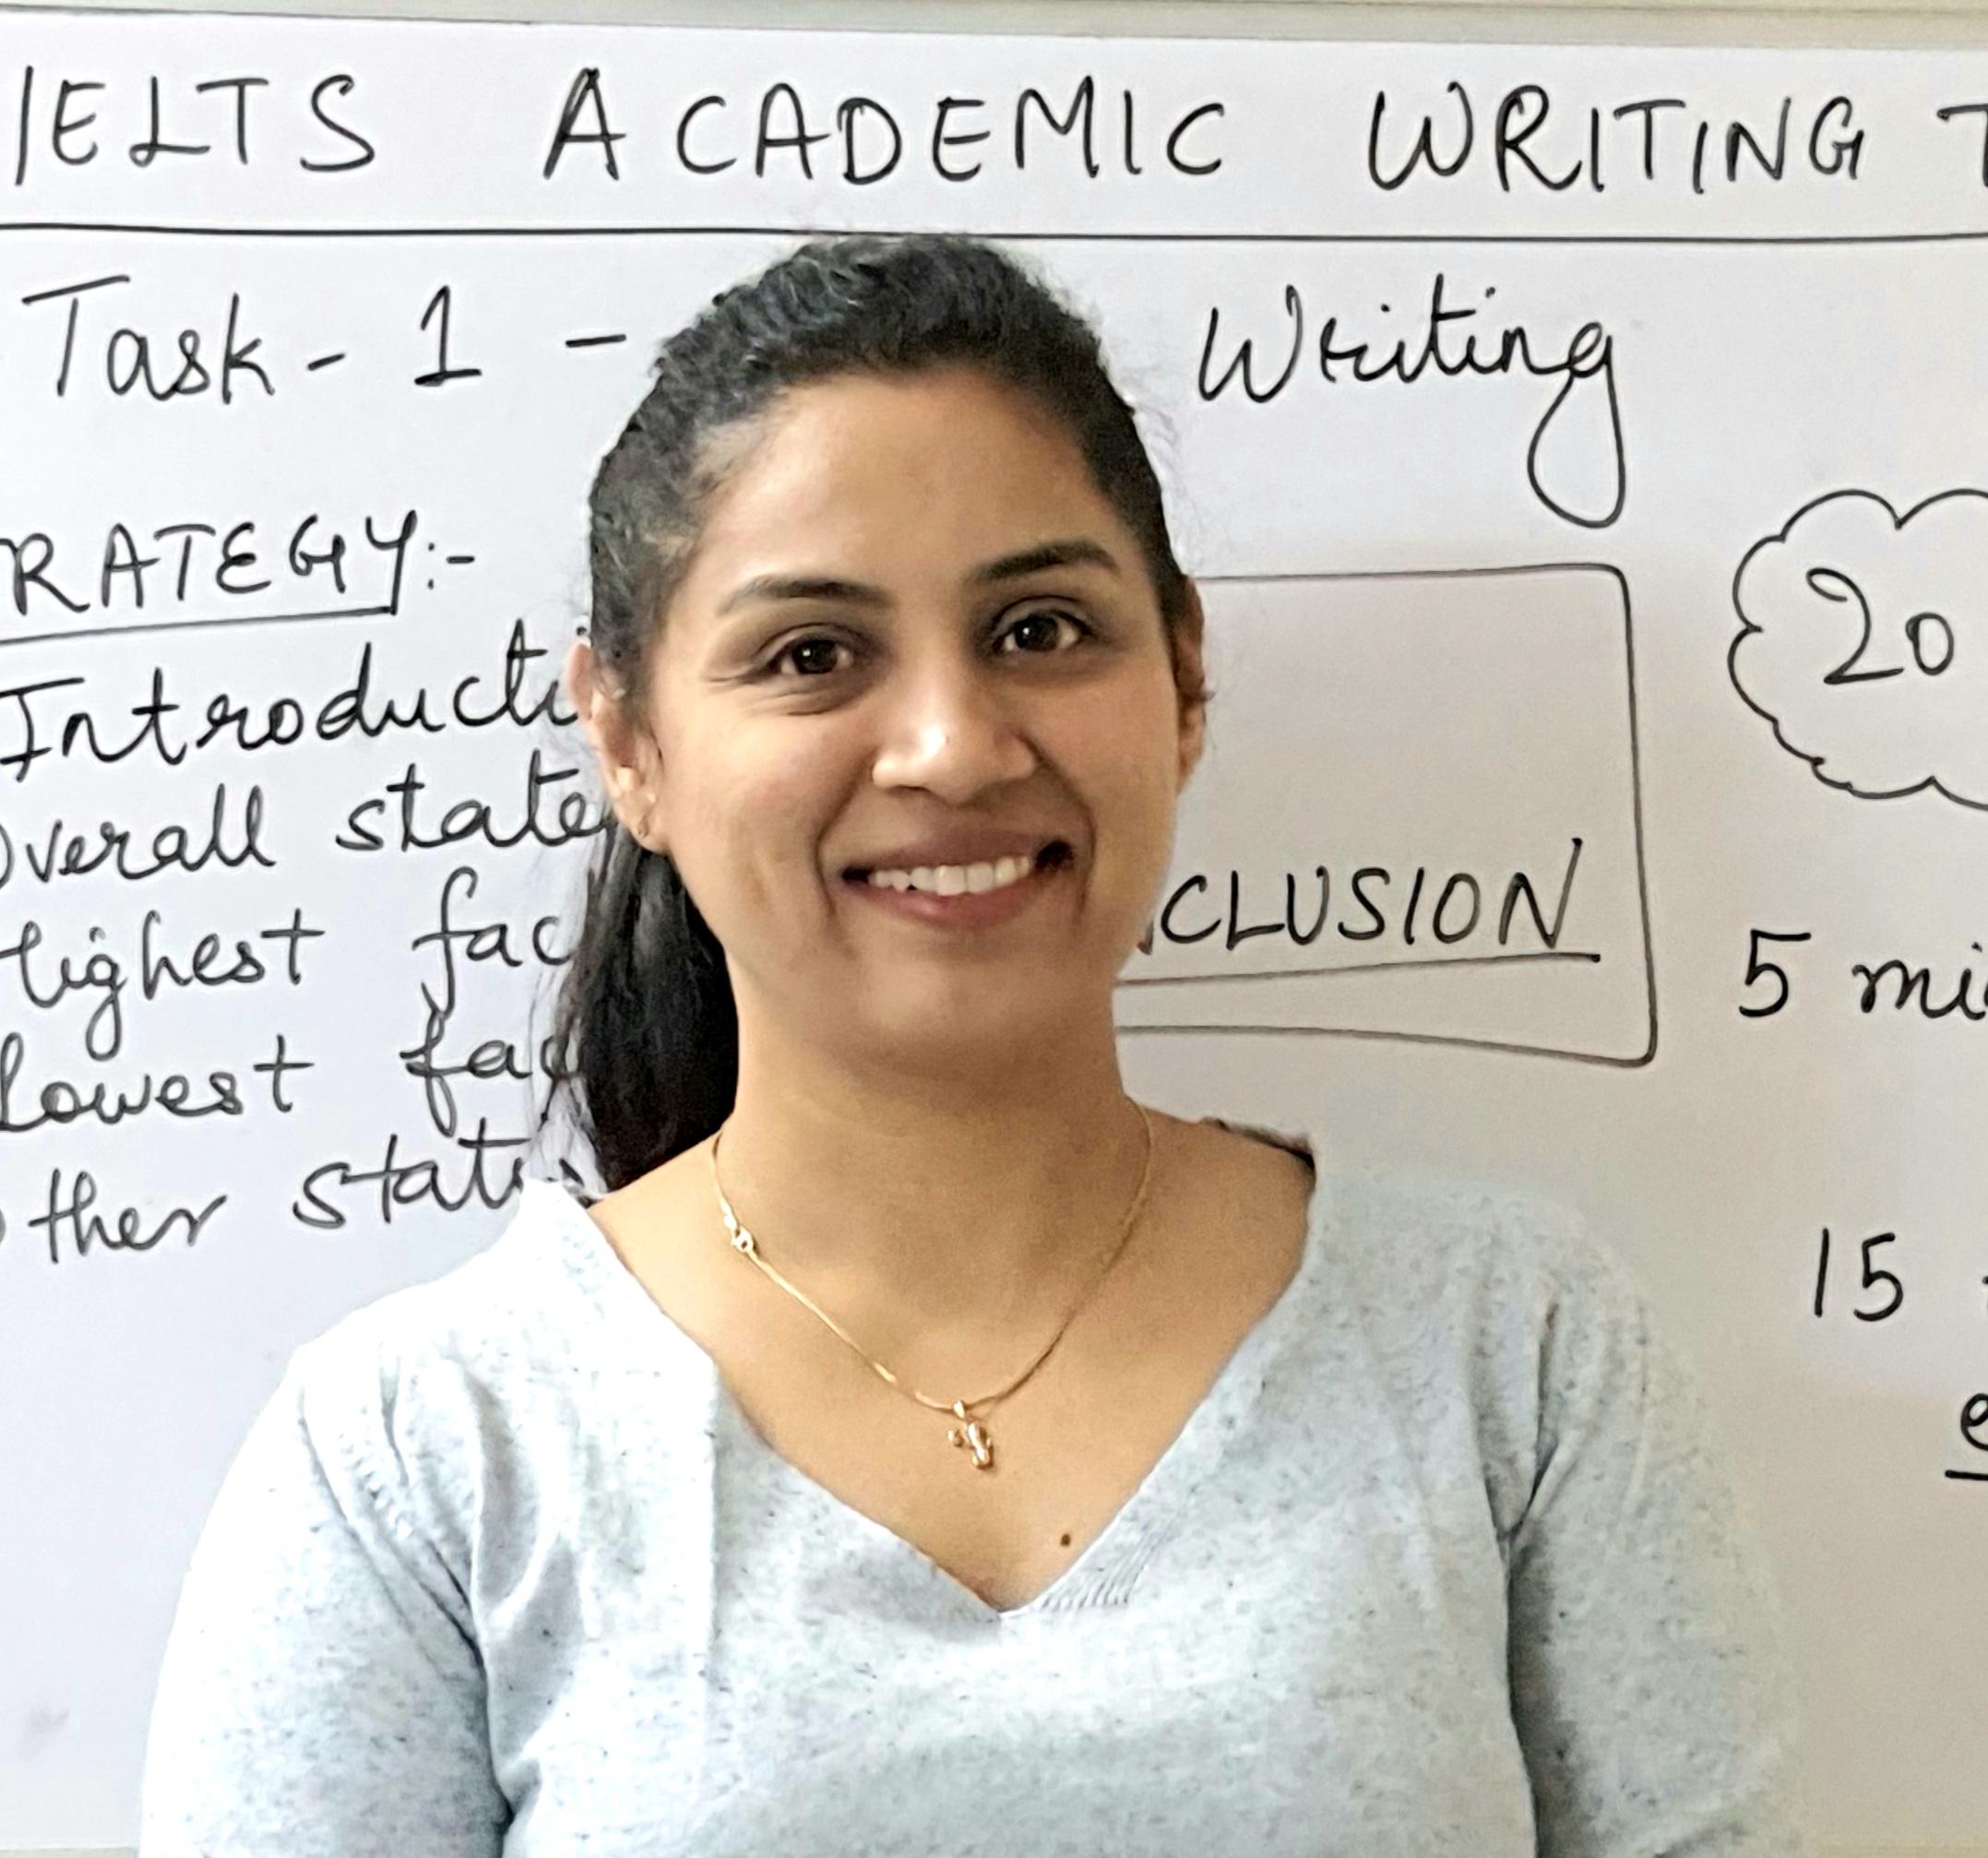 IELTS ACADEMIC WRITING T
Task - 1 - Writing
RATEGY:-
Introducti
Overall state
Highest fac
Lowest fac
Other stati
NCLUSION
20
5 mi
15
e